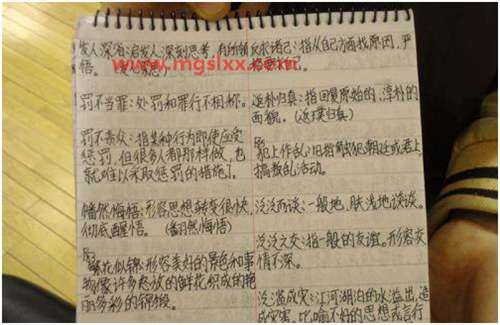 发人深省:启发人深刻思考,有所醒
悟。
www.mgslxx.com
罚不当罪:处罚和罪行不相称。
罚不责众:指某种行为即使应受
惩罚,但很多人都那样做,也
就难以采取惩罚的措施。
幡然悔悟:形容思想转变很快,
彻底醒悟。(翻然悔悟)
繁花似锦:形容美好的景色和事
物像许多盛放的鲜花织成的艳
丽多彩的锦缎。
反求诸己:指从自己方面找原因,严
返朴归真:指回复原始的、淳朴的
面貌。(返璞归真)
犯上作乱:旧指触犯朝廷或君上,
搞叛乱活动。
泛泛而谈:一般地、肤浅地谈谈。
泛泛之交:指一般的友谊。形容交
情不深。
泛滥成灾:江河湖泊的水溢出,造
成灾害。比喻不好的思想或言行